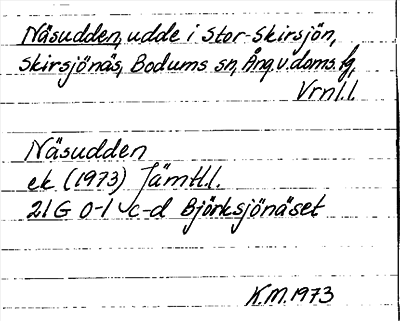 Näsudden, udde i Stor-Skirsjön,
Skirsjönäs, Bodums sn, Ång.v.doms.fg,
Vrnl.l.
Näsudden
ek (1973) Jämtl.l.
21G 0-1 c-d Björksjönäset
K.M. 1973